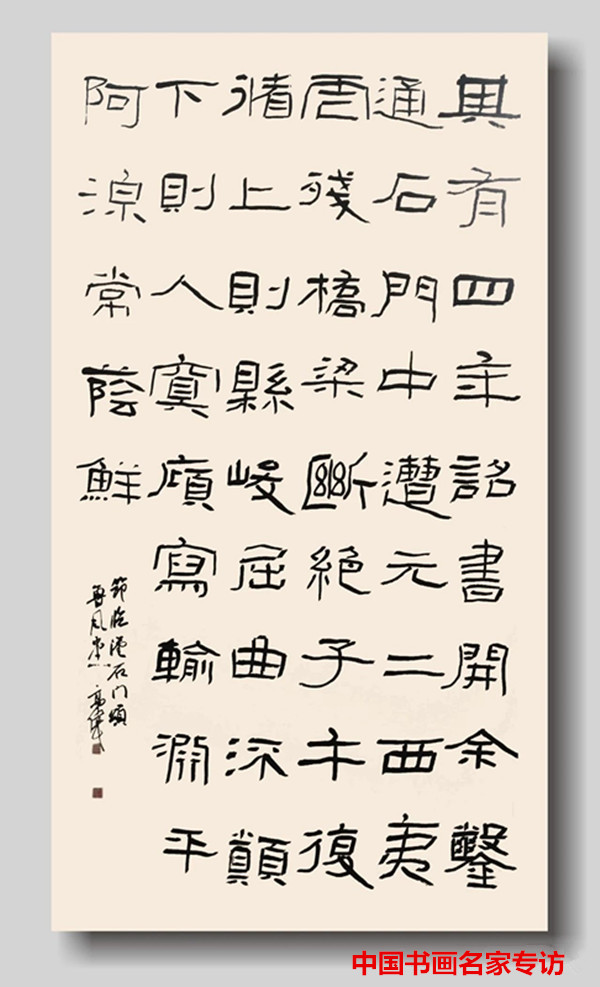 其有四年詔書開余鑿
通石門中遭元二西夷
虐殘橋梁斷絕子午復
循上則縣峻屈曲流顛
下則入冥廎寫輸淵平
阿涼常蔭鮮
節臨漢石門頌
高偉
中国书画名家专访